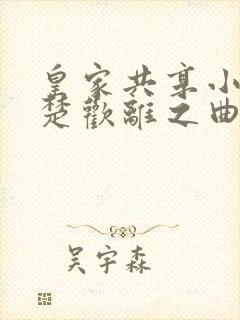 皇家共享小
楚歡離之曲
吴宇森